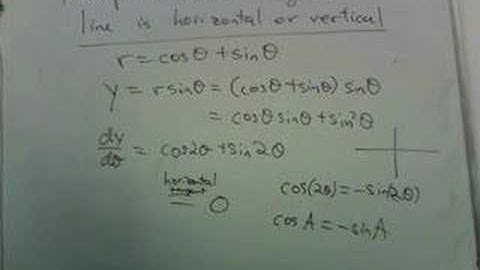 line is horizontal or vertical
r = cosθ + sinθ
y = r sinθ = (cosθ + sinθ) sinθ
= cosθ sinθ + sin²θ
dy/dθ = cos2θ + sin2θ
horizontal
= 0
cos(2θ) = -sin(2θ)
cos A = -sin A